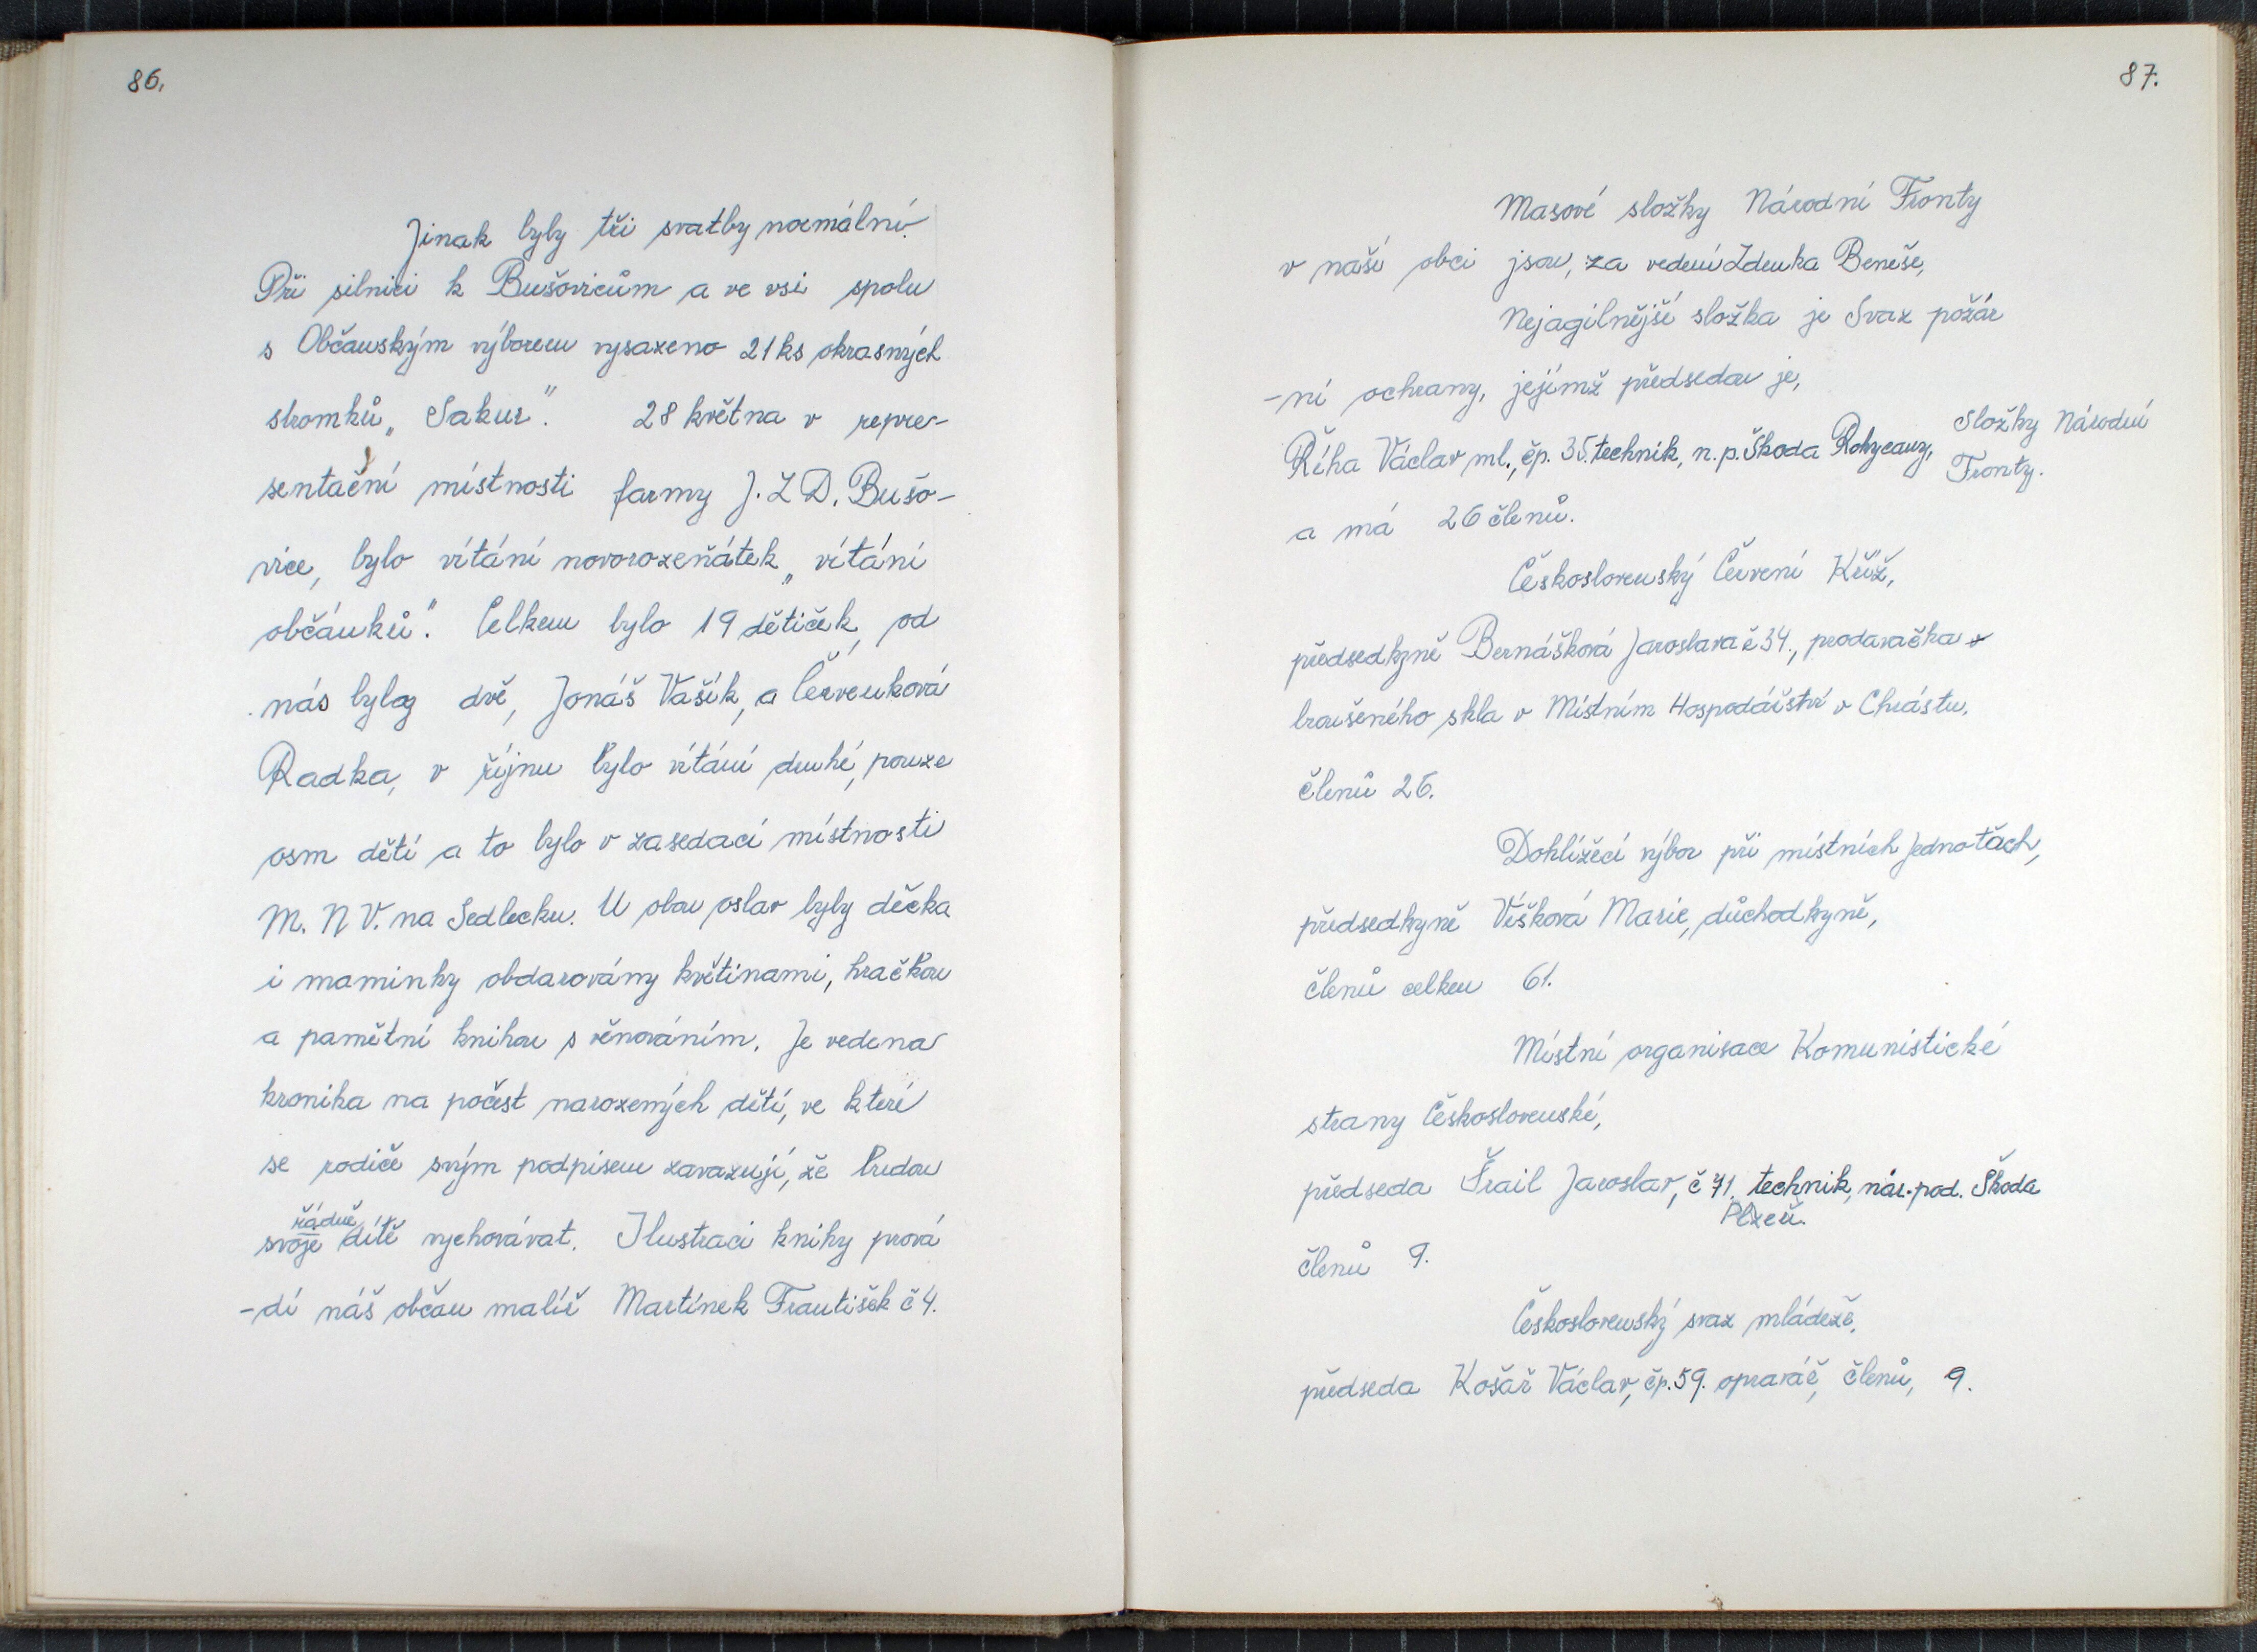 86.
Jinak byly tři svatby normální.
Při silnici k Bušovicům a ve vsi spolu
s Občanským výborem vysazeno 21 ks okrasných
stromků „Sakur". 28 května v repre-
sentační místnosti farmy J.Z.D. Bušo-
vice, bylo vítání novorozeňátek „vítání
občánků". Celkem bylo 19 dětiček, od
nás byly dvě, Jonáš Vašík, a Červenková
Radka, v říjnu bylo vítání druhé, pouze
osm dětí a to bylo v zasedací místnosti
M.N.V. na Sedlecku. U obou oslav byly děcka
i maminky obdarovány květinami, hračkou
a pamětní knihou s věnováním. Je vedena
kronika na počest narozených dětí, ve které
se rodiče svým podpisem zavazují, že budou
řádně
svoje dítě vychovávat. Ilustraci knihy prová
-dí náš občan malíř Martínek František č 4.
87.
Masové složky Národní Fronty
v naší obci jsou, za vedení Zdeňka Beneše,
Nejagilnější složka je Svaz požár
-ní ochrany, jejímž předsedou je,
Říha Václav ml., čp. 35. technik, n.p. Škoda Rokycany,
Složky Národní
Fronty.
a má 26 členů.
Československý Červení Kříž,
předsedkyně Bernášková Jaroslava č 34., prodavačka v
broušeného skla v Místním Hospodářství v Chrástu,
členů 26.
Dohlížecí výbor při místních Jednotách,
předsedkyně Víšková Marie, důchodkyně,
členů celkem 61.
Místní organisace Komunistické
strany Československé,
předseda Šrail Jaroslav, č 71. technik, nár. pod. Škoda
Plzeň.
členů 9.
Československý svaz mládeže,
předseda Košař Václav, čp. 59. opravář, členů, 9.